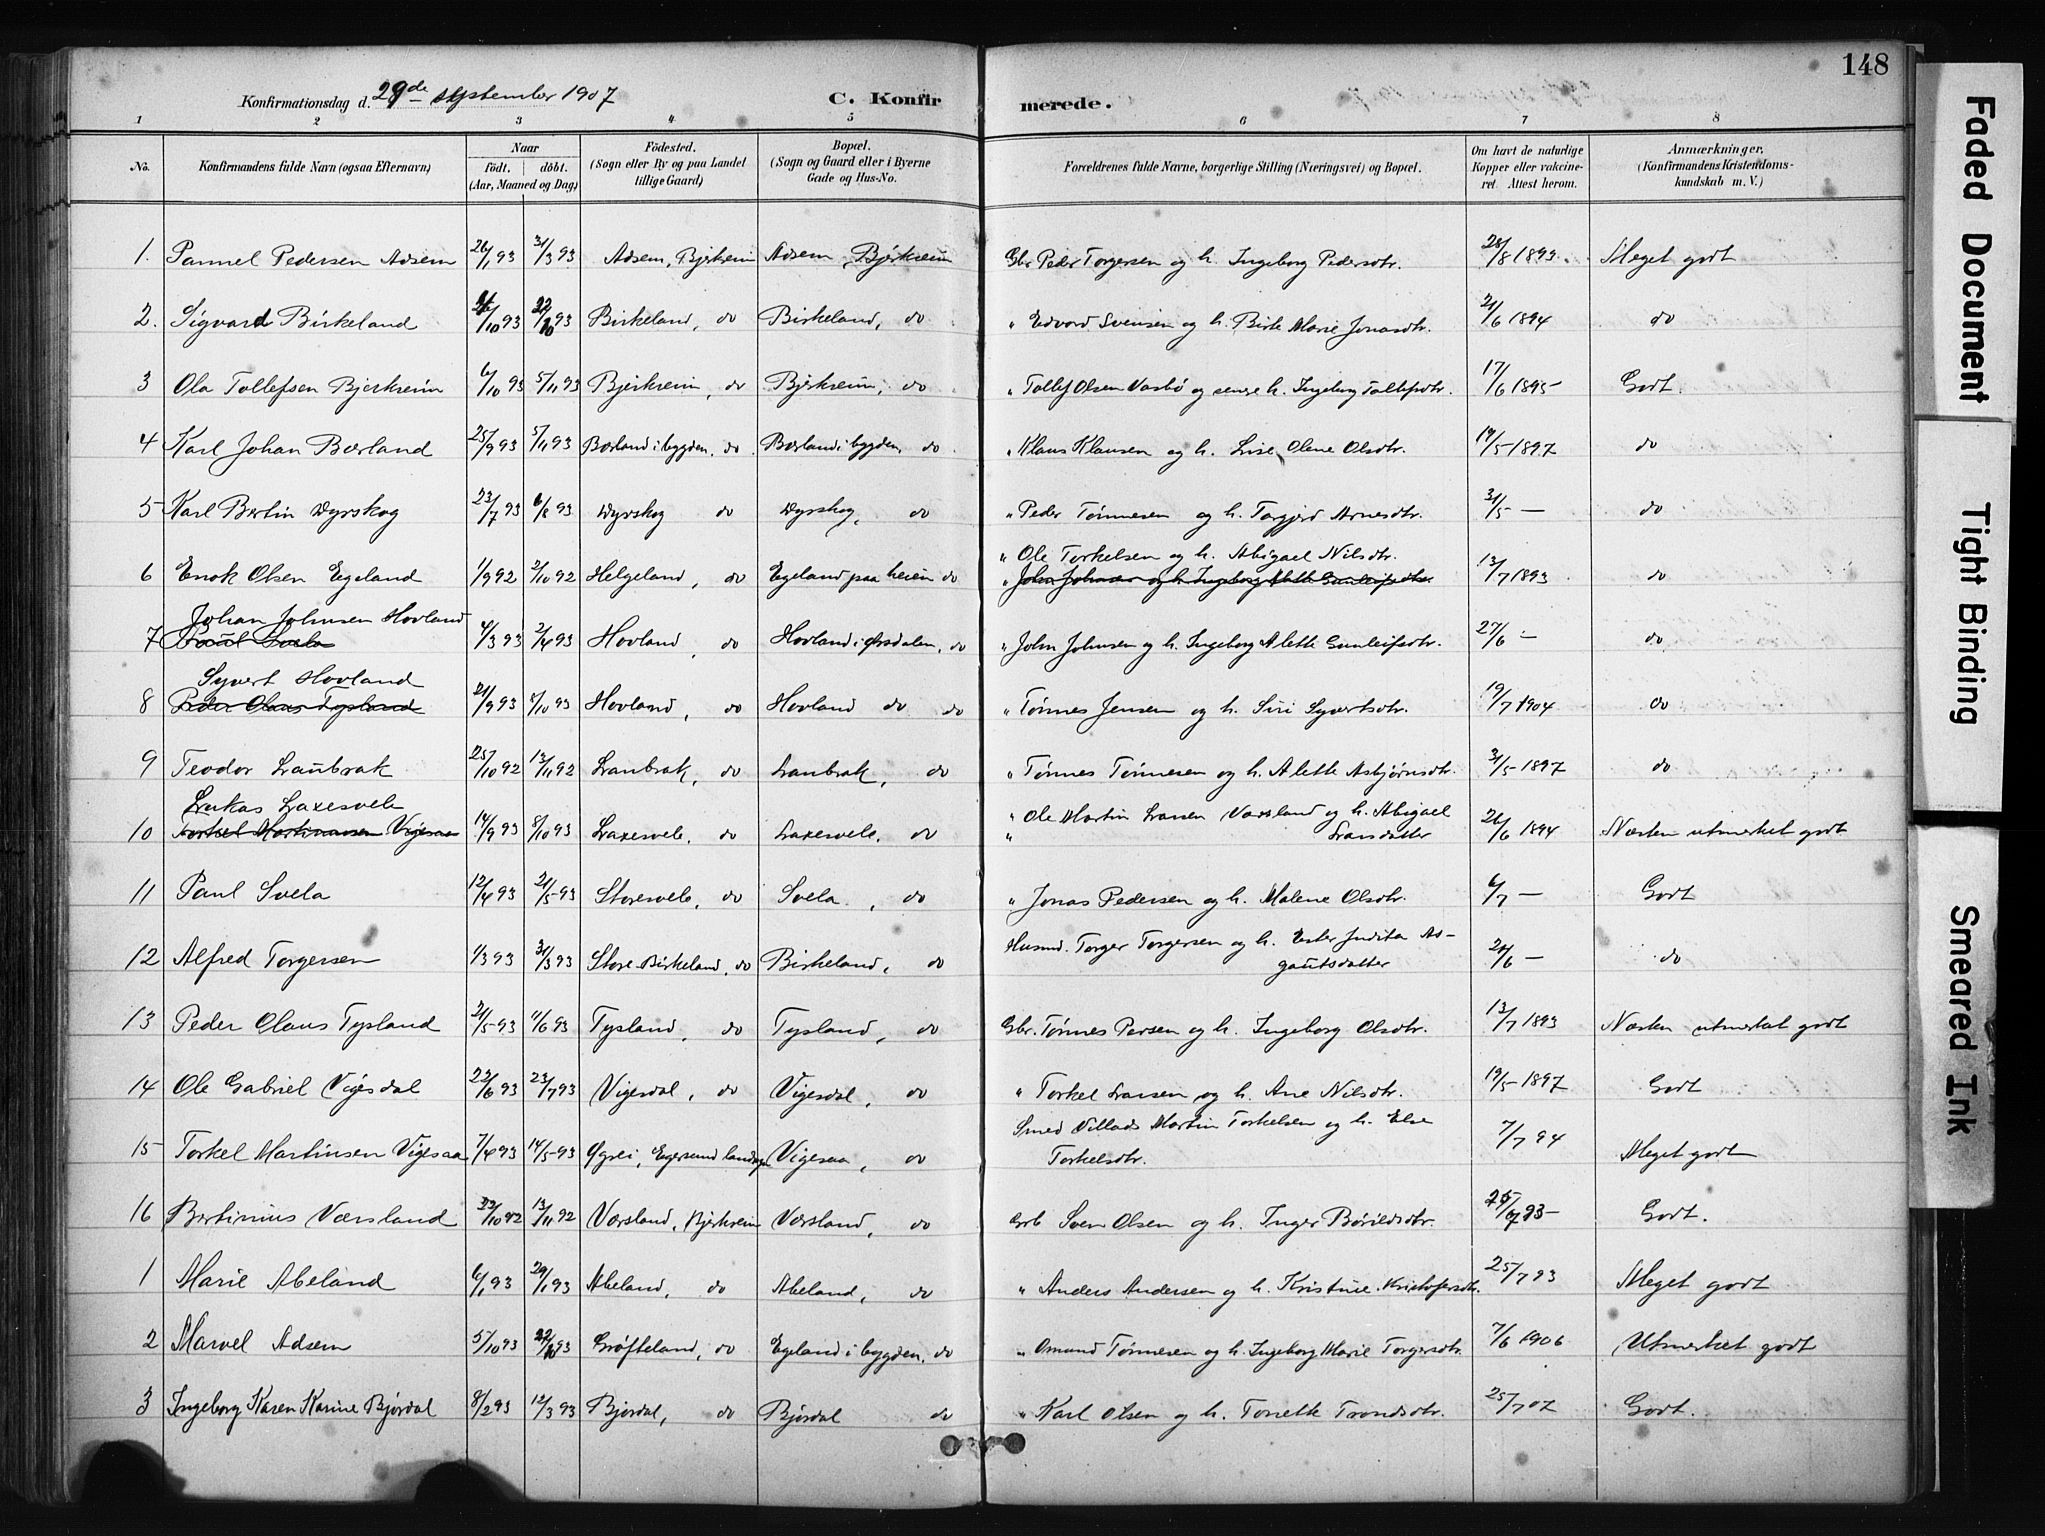 148
Konfirmationsdag d. 29de september 1907 C. Konfirmerede.
1 2 3 4 5 6 7 8
No. Konfirmandens fulde Navn (ogsaa Efternavn) Naar født. døbt. (Aar, Maaned og Dag) Födested. (Sogn eller By og paa Landet tillige Gaard) Bopæl. (Sogn og Gaard eller i Byerne Gade og Hus-No. Forældrenes fulde Navne, borgerlige Stilling (Næringsvei) og Bopæl. Om havt de naturlige Kopper eller vakcineret. Attest herom. Anmærkninger. (Konfirmandens Kristendomskundskab m. V.)
1. Pedersen Adsem 26/1 93 31/3 93 Adsem, Bjerkreim Adsem, Bjerkreim Gbr. Peder Torgersen og h. Ingeborg Pedersdtr. 28/8 1893. Meget godt
2. Sigvard Birkeland /10 93 22/10 93 Birkeland, do Birkeland, do " Edvard Svensen og h. Birte Marie Jonasdtr. 21/6 1894 do
3 Ola Tollefsen Bjerkreim 6/10 93 5/11 93 Bjerkreim, do Bjerkreim, do " Tollef Olsen Vasbø og h. Ingeborg Tollefsdtr. 17/6 1895 Godt.
4 Karl Johan Bærland 25/9 93 5/11 93 Bærland i bygden, do Bærland i bygden, do " Klaus Klausen og h. Lise Olene Olsdtr. 19/5 1897 do
5 Karl Bertin Dyrskog 23/7 93 6/8 93 Dyrskog do Dyrskog, do " Peder Tønnesen og h. Torgjerd Arnesdtr. 31/5 — do
" Ole Torkelsen og h. Abigael Nilsdtr.
6 Enok Olsen Egeland 1/9 92 2/10 92 Helgeland, do Egeland paa heien do " John Johnsen og h. Ingeborg Alette Gunleifsdtr 13/7 1893 do
Johan Johnsen Hovland
7 Paul Svela 4/3 93 2/4 93 Hovland, do Hovland i Ørsdalen, do " John Johnsen og h. Ingeborg Alette Gunleifsdtr. 27/6 — do
Syvert Hovland
8 Peder Olaus Tysland 21/9 93 /10 93 Hovland, do Hovland do do " Tønnes Jensen og h. Siri Syvertsdtr. 19/7 1904 do
9 Teodor Laubrak 25/10 92 13/11 92 Laubrak, do Laubrak, do " Tønnes Tønnesen og h. Alette Asbjørnsdtr. 31/5 1897 do
Lukas Laxesvele " Ole Martin Larsen Værsland og h. Abigael
10 Torkel Martinsen Vigesaa 14/9 93 8/10 93 Laxesvele, do Laxesvele, do " Larsdatter 26/6 1894 Næsten utmerket godt
11 Paul Svela 12/4 93 21/5 93 Storesvele, do Svela, do " Jonas Pedersen og h. Malene Olsdtr. 6/7 — Godt
12 Alfred Torgersen 1/3 93 31/3 93 Store Birkeland, do Birkeland, do Husmd. Torger Torgersen og h. Ester Judita As-
gautsdatter 26/6 — do
13 Peder Olaus Tysland 21/5 93 11/6 93 Tysland, do Tysland, do Gbr. Tønnes Persen og h. Ingeborg Olsdtr. 13/7 1893 Næsten utmerket godt
14 Ole Gabriel Vigesdal 22/6 93 23/7 93 Vigesdal, do Vigesdal, do " Torkel Larsen og h. Ane Nilsdtr. 19/5 1897 Godt
Smed Villads Martin Torkelsen og h. Else
15 Torkel Martinsen Vigesaa 7/4 93 14/5 93 Ygrei, Egersund landsogn Vigesaa, do Torkelsdtr. 7/7 94 Meget godt
16 Bertinius Værsland /10 92 13/11 92 Værsland, Bjerkreim Værsland, do Grb Sven Olsen og h. Inger Børildsdtr. 25/7 93 Godt.
1 Marie Abeland 6/1 93 29/1 93 Abeland, do Abeland, do " Anders Andersen og h. Kristine Kristofersdtr. 25/7 93 Meget godt
2 Marvel Adsem 5/10 93 22/10 93 Grøfteland, do Egeland i bygden, do " Omund Tønnesen og h. Ingeborg Marie Torgersdtr. 7/6 1906 Utmerket godt
3 Ingeborg Karen Karine Bjørdal 8/2 93 12/3 93 Bjørdal, do Bjørdal do " Karl Olsen og h. Tonette Trondsdtr. 25/7 07 Godt.
Faded Document
Tight Binding
Smeared Ink